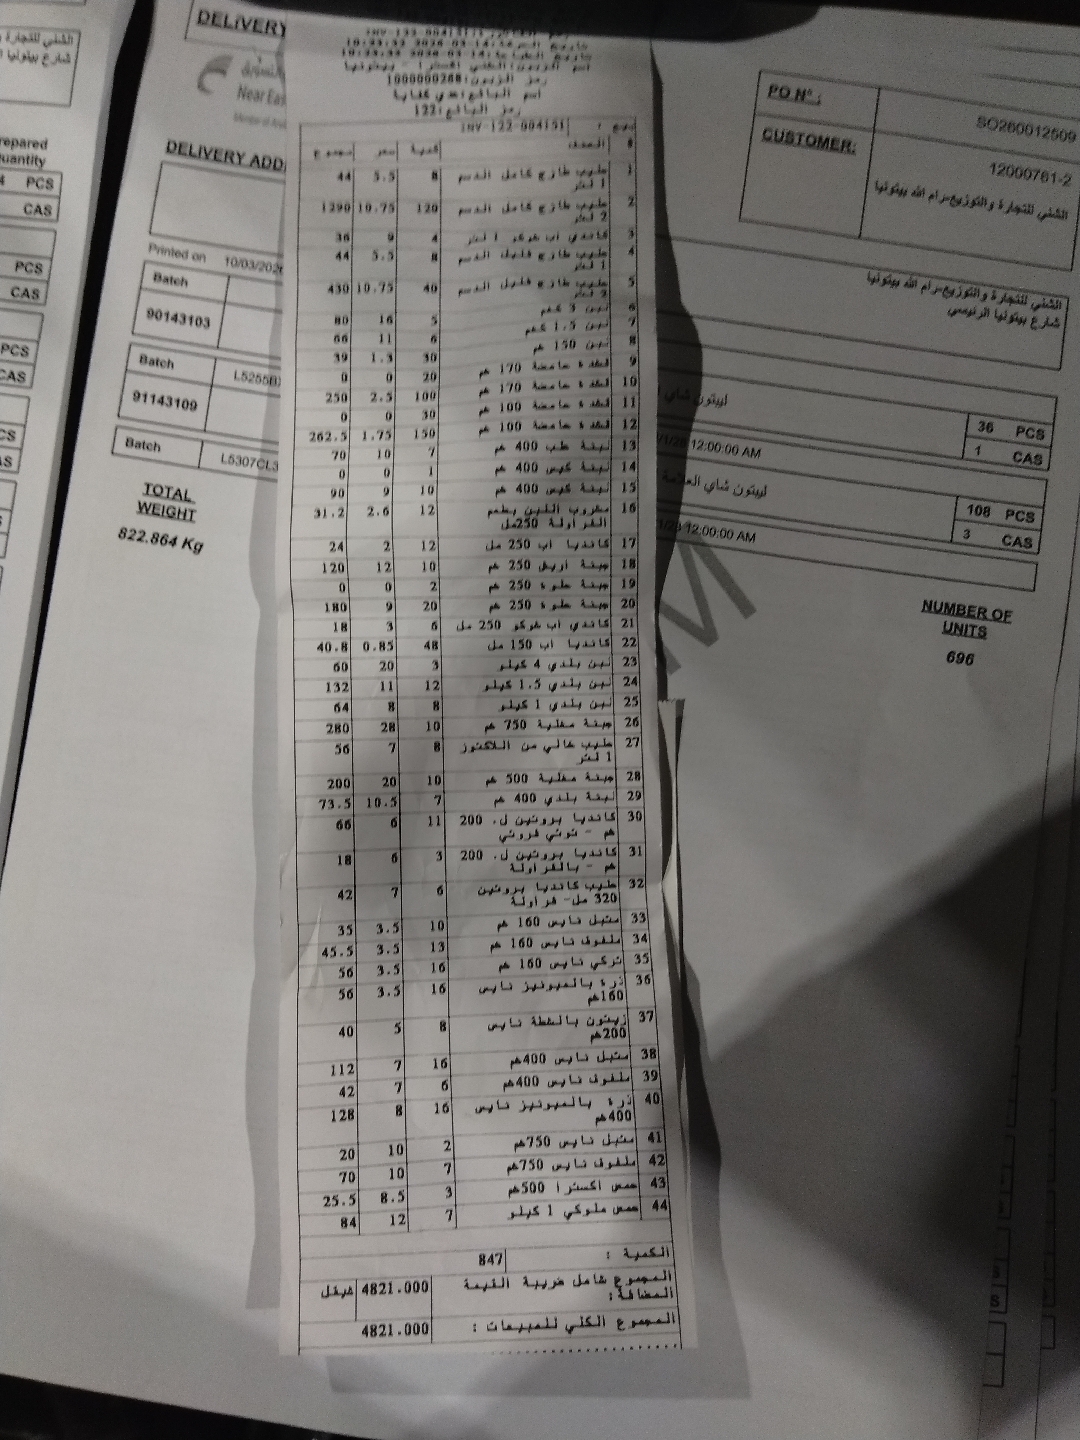 INV-122-004151
اسم الزبون: الشني اكسترا - بيتونيا
رمز الزبون: 1000000288
اسم البائع: عدي كفاية
رمز البائع: 122
بيع : INV-122-004151
# الصنف كمية سعر مجموع
1 حليب طازج كامل الدسم 8 5.5 44
1 لتر
2 حليب طازج كامل الدسم 120 10.75 1290
2 لتر
3 كاندي اب شوكو 1 لتر 4 9 36
4 حليب طازج قليل الدسم 8 5.5 44
1 لتر
5 حليب طازج قليل الدسم 40 10.75 430
2 لتر
6 لبن 3 كغم 5 16 80
7 لبن 1.5 كغم 6 11 66
8 لبن 150 غم 30 1.3 39
9 قشدة حامضة 170 غم 20 0 0
10 قشدة حامضة 170 غم 100 2.5 250
11 قشدة حامضة 100 غم 30 0 0
12 قشدة حامضة 100 غم 150 1.75 262.5
13 لبنة علب 400 غم 7 10 70
14 لبنة كيس 400 غم 1 0 0
15 لبنة كيس 400 غم 10 9 90
16 مشروب اللبن بطعم 12 2.6 31.2
الفراولة 250مل
17 كانديا اب 250 مل 12 2 24
18 جبنة اريش 250 غم 10 12 120
19 جبنة حلوة 250 غم 2 0 0
20 جبنة حلوة 250 غم 20 9 180
21 كاندي اب شوكو 250 مل 6 3 18
22 كانديا اب 150 مل 48 0.85 40.8
23 لبن بلدي 4 كيلو 3 20 60
24 لبن بلدي 1.5 كيلو 12 11 132
25 لبن بلدي 1 كيلو 8 8 64
26 جبنة مغلية 750 غم 10 28 280
27 حليب خالي من اللاكتوز 8 7 56
1 لتر
28 جبنة مغلية 500 غم 10 20 200
29 لبنة بلدي 400 غم 7 10.5 73.5
30 كانديا بروتين ل. 200 11 6 66
غم - توتي فروتي
31 كانديا بروتين ل. 200 3 6 18
غم - بالفراولة
32 حليب كانديا بروتين 6 7 42
320 مل- فراولة
33 متبل نايس 160 غم 10 3.5 35
34 ملفوف نايس 160 غم 13 3.5 45.5
35 تركي نايس 160 غم 16 3.5 56
36 ذرة بالميونيز نايس 16 3.5 56
160غم
37 زيتون بالشطة نايس 8 5 40
200غم
38 متبل نايس 400غم 16 7 112
39 ملفوف نايس 400غم 6 7 42
40 ذرة بالميونيز نايس 16 8 128
400غم
41 متبل نايس 750غم 2 10 20
42 ملفوف نايس 750غم 7 10 70
43 حمص اكسترا 500غم 3 8.5 25.5
44 حمص ملوكي 1 كيلو 7 12 84
الكمية : 847
المجموع شامل ضريبة القيمة 4821.000 شيقل
المضافة:
المجموع الكلي للمبيعات : 4821.000
DELIVERY
Near Eas
DELIVERY ADD
Printed on 10/03/202
Batch
90143103
Batch L5255B
91143109
Batch L5307CL3
TOTAL
WEIGHT
822.864 Kg
PO Nº : SO260012509
CUSTOMER: 12000761-2
الشني للتجارة والتوزيع-رام الله بيتونيا
الشني للتجارة والتوزيع-رام الله بيتونيا
شارع بيتونيا الرئيسي
ليبتون شاي
36 PCS
12:00:00 AM 1 CAS
ليبتون شاي العلامة
108 PCS
12:00:00 AM 3 CAS
NUMBER OF
UNITS
696
الشني للتجارة
شارع بيتونيا
repared
uantity
4 PCS
CAS
PCS
CAS
PCS
CAS
CS
AS